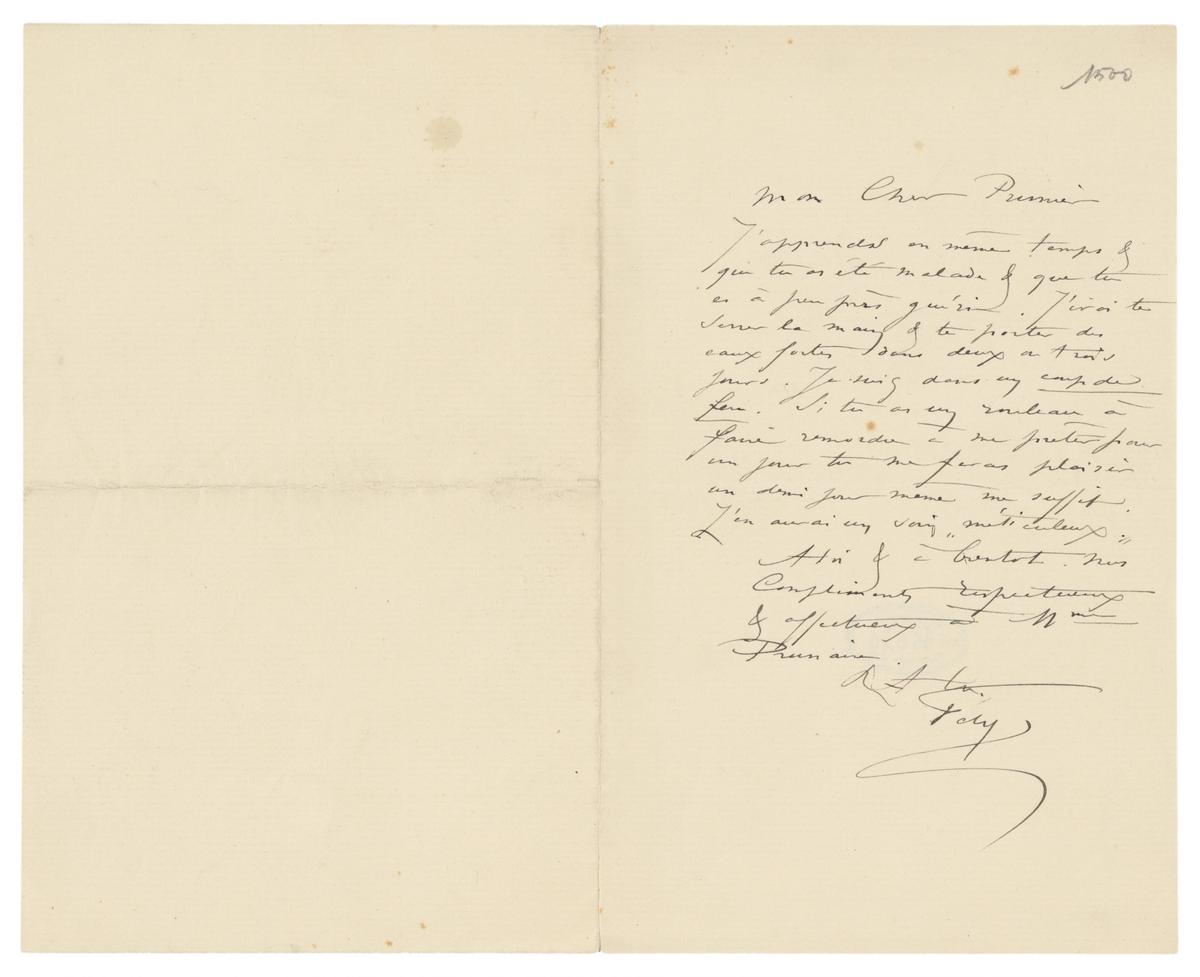 1500
Mon Cher Prunier
J'apprends en même temps &
que tu as été malade & que tu
es à peu près guéri. J'irai te
serrer la main & te porter des
eaux fortes dans deux ou trois
jours. Je suis dans un coup de
feu. Si tu as un rouleau à
faire remordre à me prêter pour
un jour tu me feras plaisir
un demi jour même me suffit.
J'en aurai un soin „méticuleux„
A toi & à bientot. Nos
Compliments respectueux
& affectueux à Mme
Prunaire